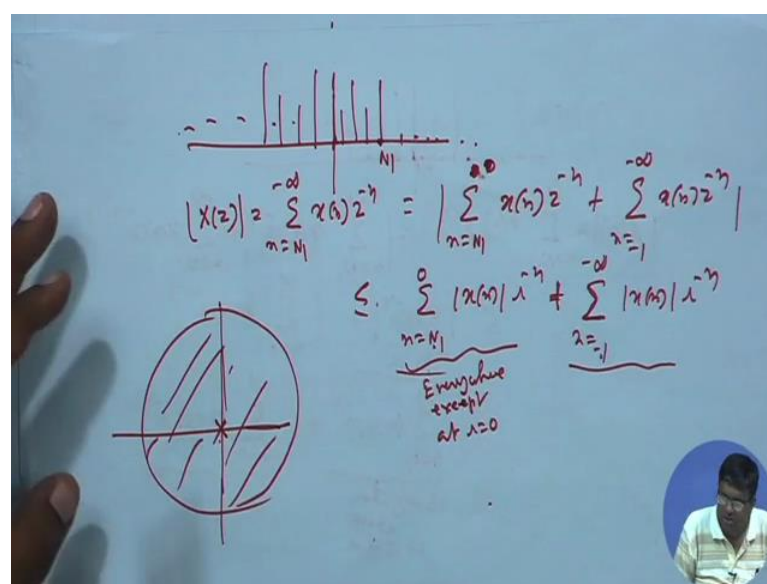 N1
|X(z)| = ∑_{n=N1}^{-∞} x(n) z^{-n} = | ∑_{n=N1}^{0} x(n) z^{-n} + ∑_{n=-1}^{-∞} x(n) z^{-n} |
≤ ∑_{n=N1}^{0} |x(n)| r^{-n} + ∑_{n=-1}^{-∞} |x(n)| r^{-n}
Everywhere
except
at r=0